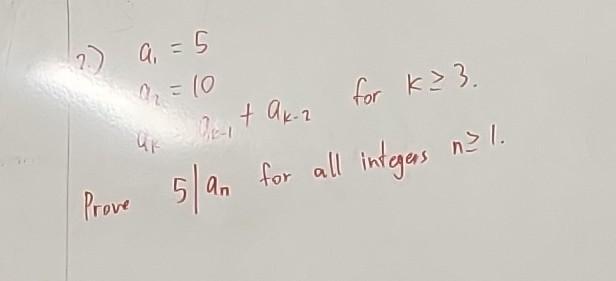 2.) a₁ = 5
a₂ = 10
aₖ = aₖ₋₁ + aₖ₋₂ for k ≥ 3.
Prove 5|aₙ for all integers n ≥ 1.